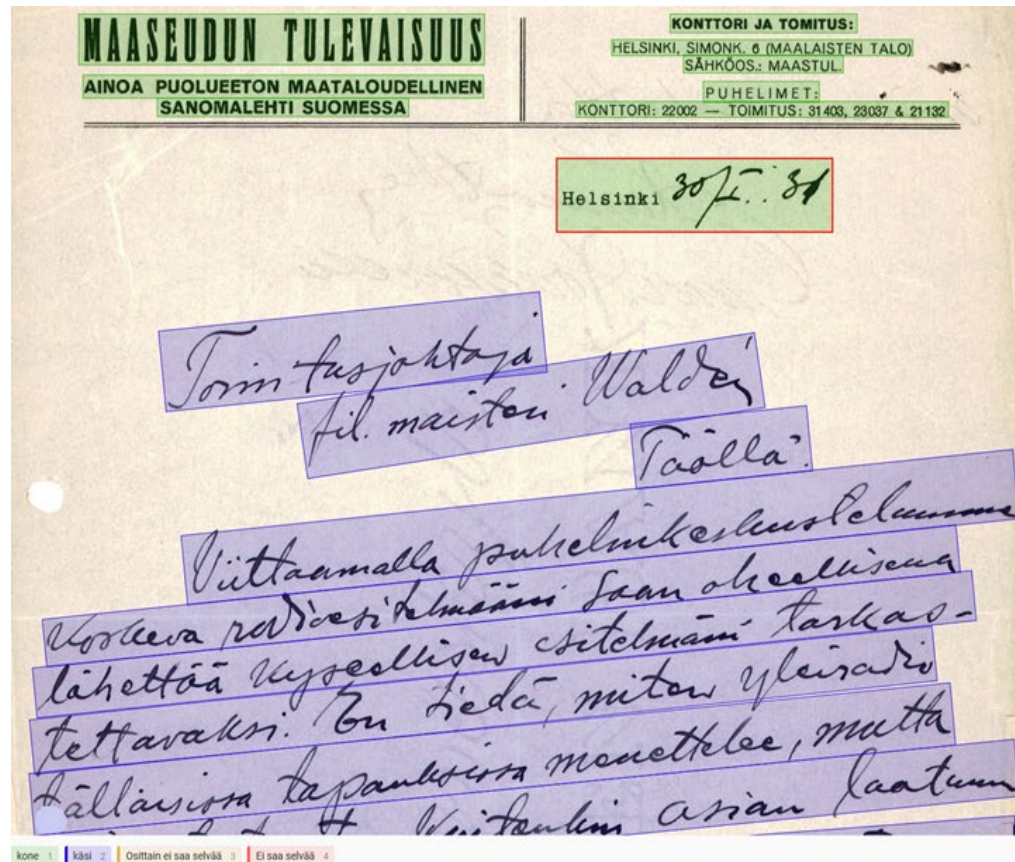 MAASEUDUN TULEVAISUUS
AINOA PUOLUEETON MAATALOUDELLINEN
SANOMALEHTI SUOMESSA
KONTTORI JA TOMITUS:
HELSINKI, SIMONK. 6 (MAALAISTEN TALO)
SÄHKÖOS.: MAASTUL.
PUHELIMET:
KONTTORI: 22002 — TOIMITUS: 31403, 23037 & 21132
Helsinki 30/I. 31
Toimitusjohtaja
fil. maisteri Walden
Täällä.
Viittaamalla puhelinkeskusteluumme
koskeva radioesitelmääni saan oheellisena
lähettää kyseellisen esitelmäni tarkas-
tettavaksi. En tiedä, miten yleisradio
tällaisissa tapauksissa menettelee, mutta
Kuitenkin asian laatuun
kone 1 käsi 2 Osittain ei saa selvää 3 Ei saa selvää 4